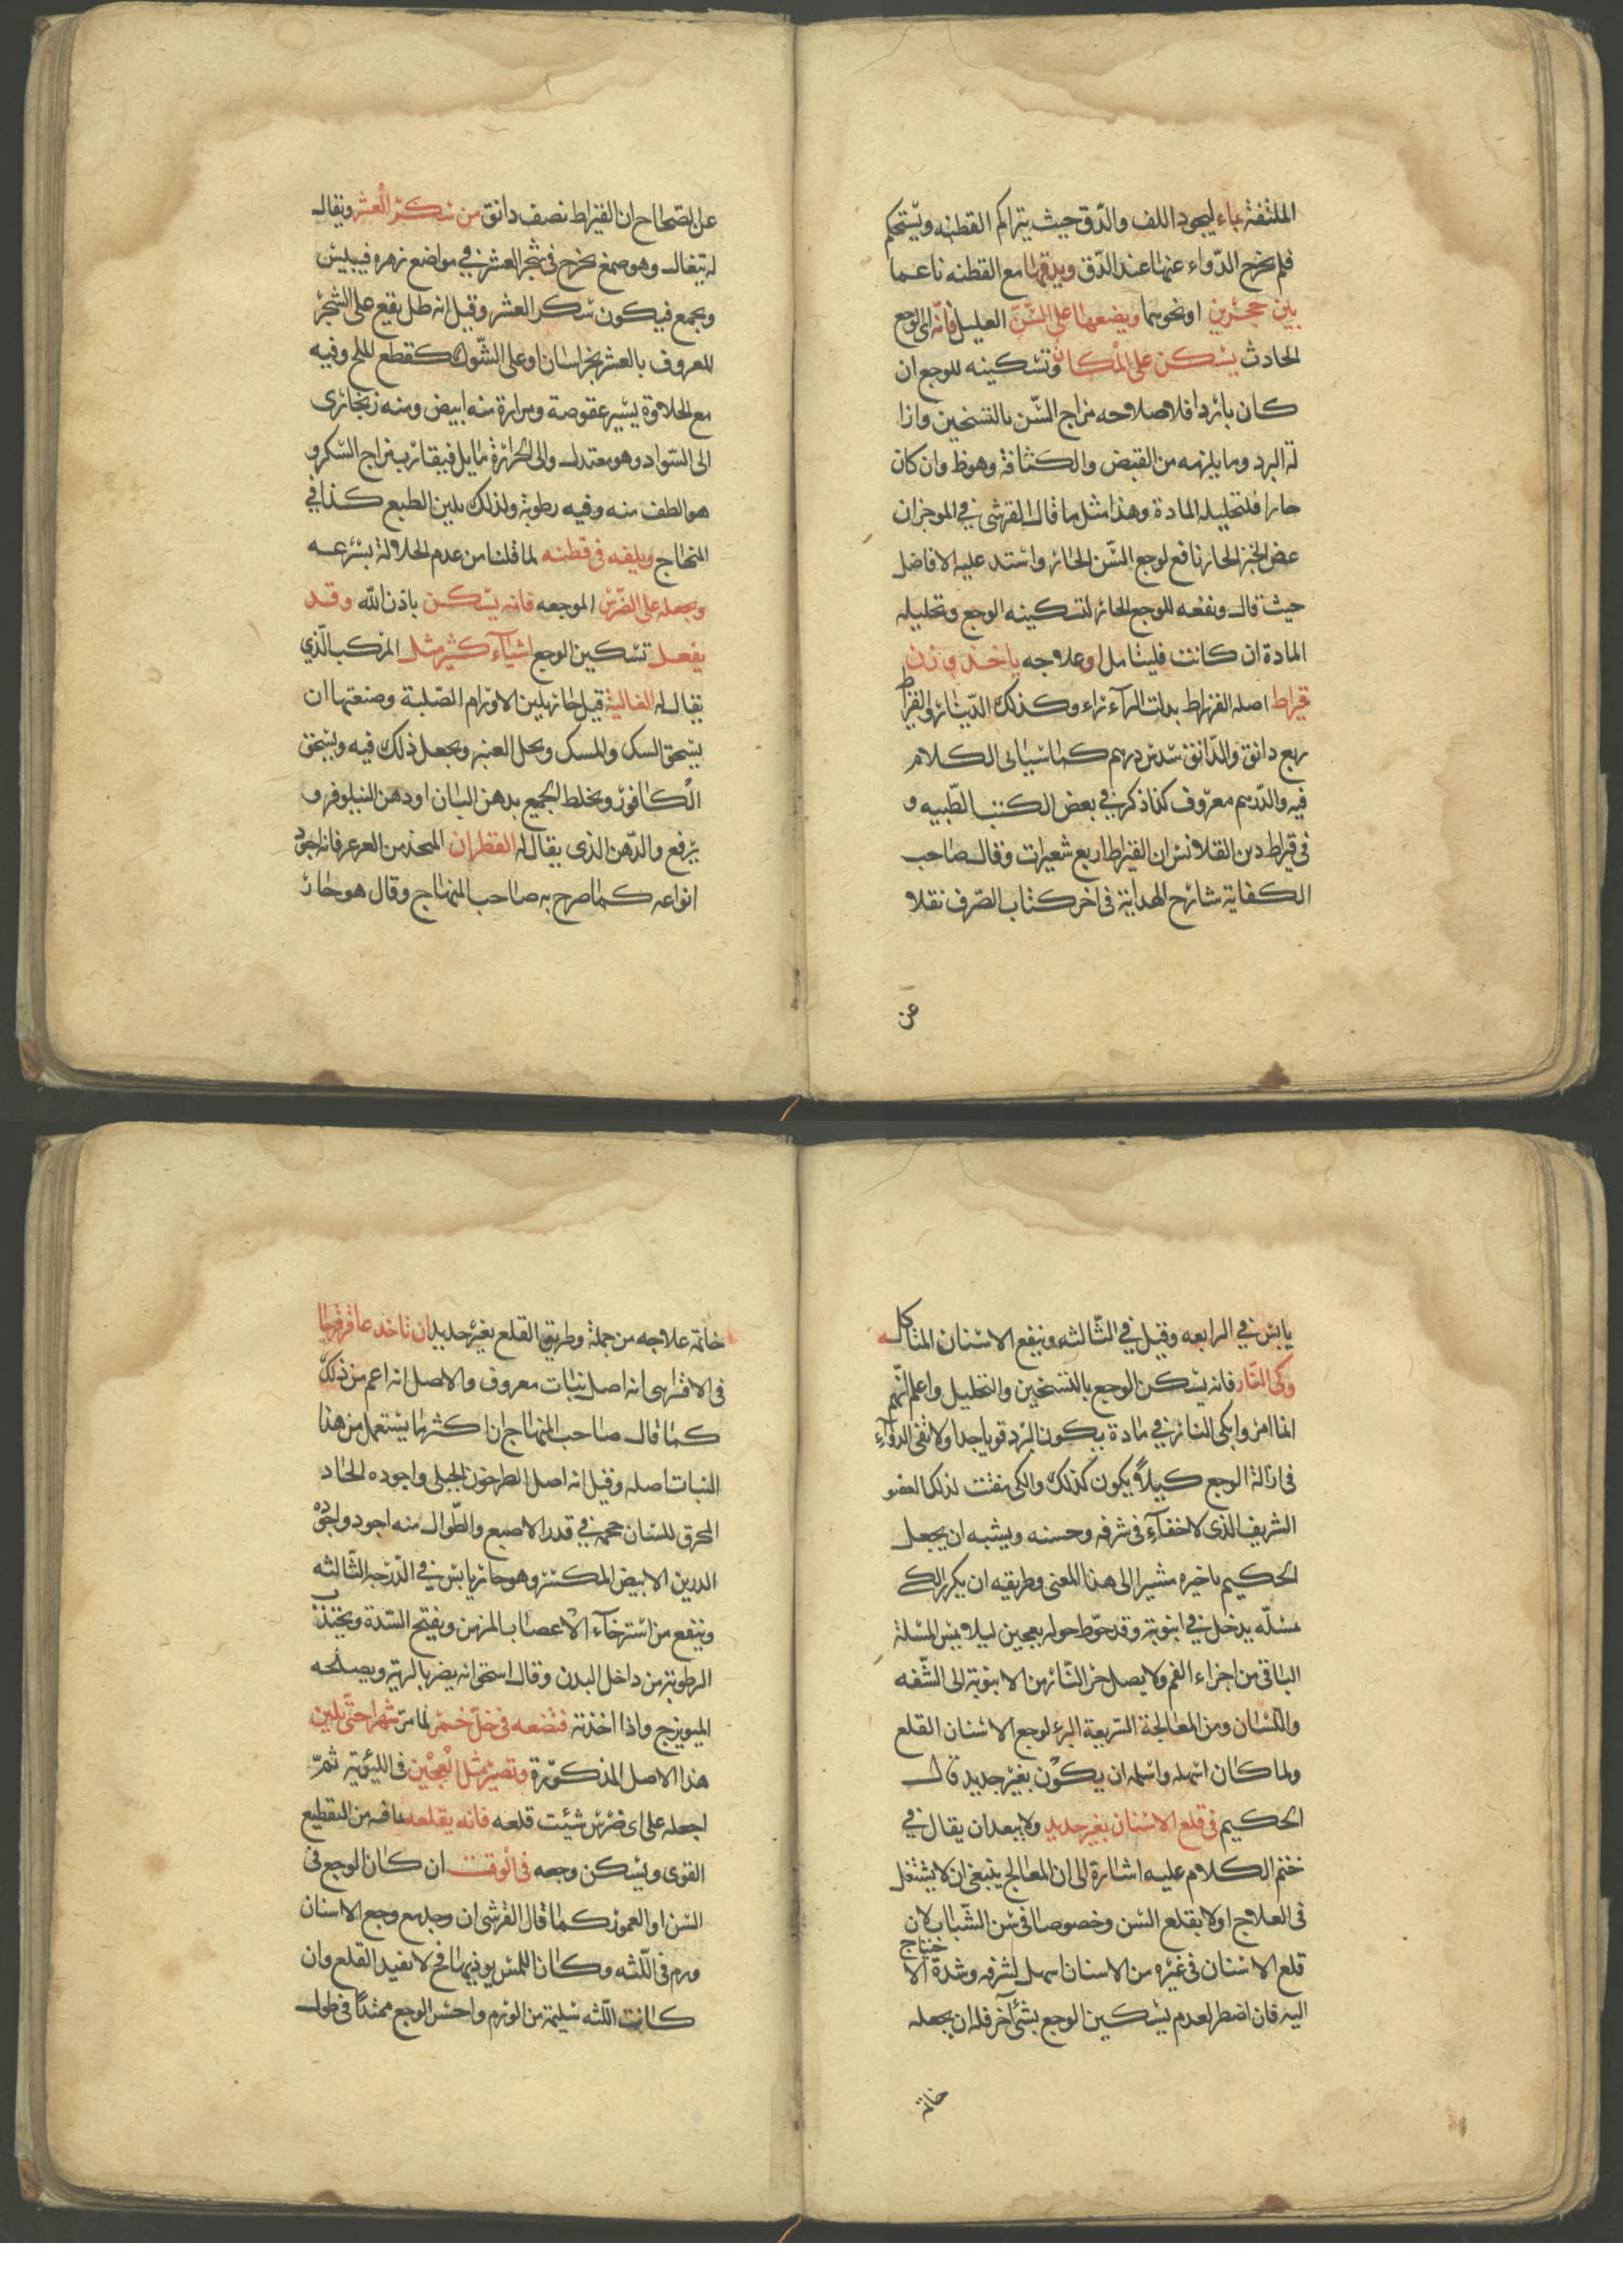 الملتفتة بماء ليجود اللف والدّق حيث يتراكم القطنه ويستحكم
فلم يخرج الدّواء عنها عند الدّق ويدقها مع القطنه ناعما
بين حجرين او نحوهما ويضعها على السّنّ العليل فانّه اى الوجع
الحادث يسكن على المكان وتسكينه للوجع ان
كان باردا فلاصلاحه مزاج السّن بالتسخين وازا
لة البرد وما يلزمه من القبض والكثافة وهوظ وان كان
حارا فلتحليله المادة وهذا مثل ما قال القرشى في الموجز ان
عض الخبز الحار نافع لوجع السّن الحار واستد عليه الافاضل
حيث قال ونفعه للوجع الحار لتسكينه الوجع وتحليله
المادة ان كانت فليتامل او علاجه ياخذ وزن
قيراط اصله القرراط بدلت الرآء ياء وكذلك الدّينار والقيراط
ربع دانق والدّانق سدس درهم كما سياتى الكلام
فيه والدّرهم معروف كذا ذكر في بعض الكتب الطّبيه و
فى قيراط دين القلانس ان القيراط اربع شعيرات وقال صاحب
الكفاية شارح الهداية فى اخر كتاب الصّرف نقلا
عن
عن الصّحاح ان القيراط نصف دانق من سكر العشر ويقال
له تيغال وهو صمغ يخرج فى شجر العشر في مواضع زهره فيبيس
ويجمع فيكون سكر العشر وقيل انه طل يقع على الشجر
المعروف بالعشر بخراسان او على الشّوك كقطع الملح وفيه
مع الحلاوة يسير عفوصة ومرارة منه ابيض ومنه زنجارى
الى السّواد وهو معتدل والى الحرارة مايل فيقارب مزاج السّكر و
هو الطف منه وفيه رطوبة ولذلك يلين الطبع كذا في
المنهاج ويلفه فى قطنه لما قلنا من عدم الحلالة بسرعه
ويجعله على الضّرس الموجعه فانه يسكن باذن الله وقد
يفعل تسكين الوجع اشيآء كثير مثل المركب الّذي
يقال له الغالية قيل حار يلين الاورام الصّلبة وصنعتها ان
يسحق السك والمسك ويحل العنبر ويجعل ذلك فيه ويسحق
الكافور ويخلط الجميع بدهن البان او دهن النيلوفر و
يرفع والدّهن الذى يقال له القطران المتخذ من العرعر فانه اجود
انواعه كما صرح به صاحب المنهاج وقال هو حار
يابس في الرابعه وقيل في الثّالثه وينفع الاسنان المتاكله
وكى النّار فانه يسكن الوجع بالتسخين والتحليل واعلم انّهم
انما امروا بكى النار في مادة يكون البرد قويا جدا ولا تفى الدوآء
فى ازالة الوجع كيلا يكون كذلك والكى يفتت لذلك العضو
الشريف الذى لا خفآء فى شرفه وحسنه ويشبه ان يجعل
الحكيم تاخيره مشيرا الى هذا المعنى وطريقه ان يكرر الكے
بمسلّه يدخل في انبوبة وقد حوّط حوله بعجين ليلا يمس المسلة
الباقى من اجزاء الفم ولا يصل حر النّار من الانبوبة الى الشّفه
واللّسان ومن المعالجة السّريعة البرء لوجع الاسنان القلع
ولما كان اسهله واسلمه ان يكون بغير حديد قال
الحكيم فى قلع الاسنان بغير حديد ولا يبعد ان يقال في
ختم الكلام عليه اشارة الى ان المعالج ينبغى ان لا يشتغل
فى العلاج اولا بقلع السّن وخصوصا فى سن الشّباب لان
قلع الاسنان فى غيره من الاسنان اسهل لشرفه وشدة الاحتياج
اليه فان اضطر لعدم يسكين الوجع بشئ آخر فله ان يجعله
خاتمة
خاتمة علاجه من جملة وطريق القلع بغير حديد ان تاخذ عاقرقرحا
فى الاقسراىى انه اصل نبات معروف والاصل انه اعم من ذلك
كما قال صاحب المنهاج ان اكثر ما يستعمل من هذا
النبات اصله وقيل انه اصل الطرخون الجبلى واجوده الحاد
المحرق للسّان حجمه في قدر الاصبع والطّوال منه اجود واجوده
الدرين الابيض المكسر وهو حار يابس في الدّرجه الثّالثه
وينفع من استرخآء الاعصاب المزمن ويفتح السّدة ويجذب
الرطوبة من داخل البدن وقال اسحق انه يضر بالرية ويصلحه
الميويزج واذا اخذته فتضعه فى خلّ خمر لما مرّ شهرا حتّى يلين
هذا الاصل المذكورة وتصير مثل العجين فى الليّونة ثمّ
اجعله على اى ضرس شيئت قلعه فانه يقلعه عافه من التقطيع
القوى ويسكن وجعه فى الوقت ان كان الوجع فى
السّن او العمور كما قال القرشى ان وجد مع وجع الاسنان
ورم فى اللّثه وكان اللمس يوذيها فح لا يفيد القلع وان
كانت اللّثه سليمة من الورم واحس الوجع ممتدّا فى طول